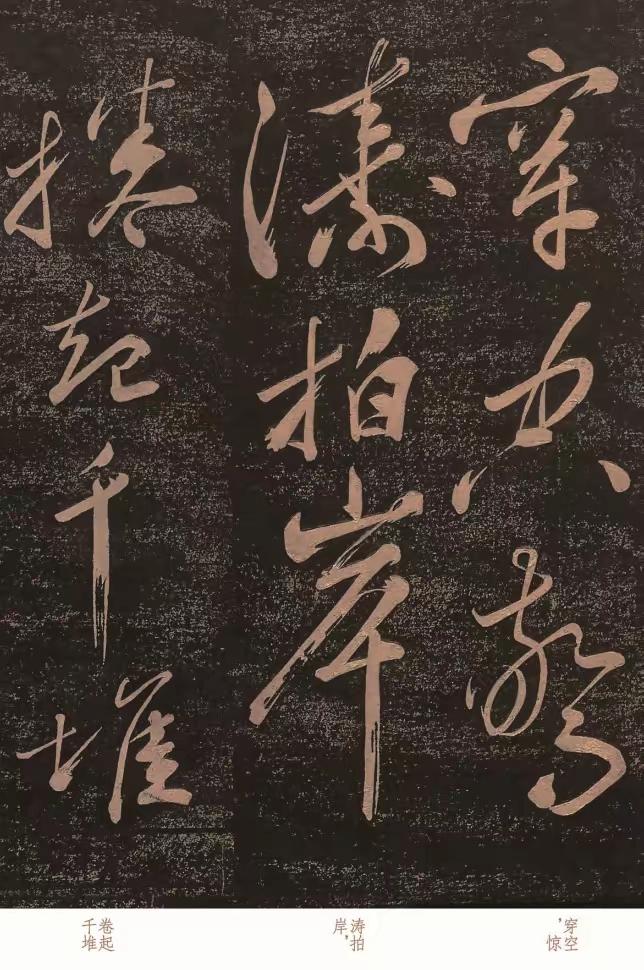 穿空驚
濤拍岸
捲起千堆
穿空
，惊
涛拍
岸，
卷起
千堆